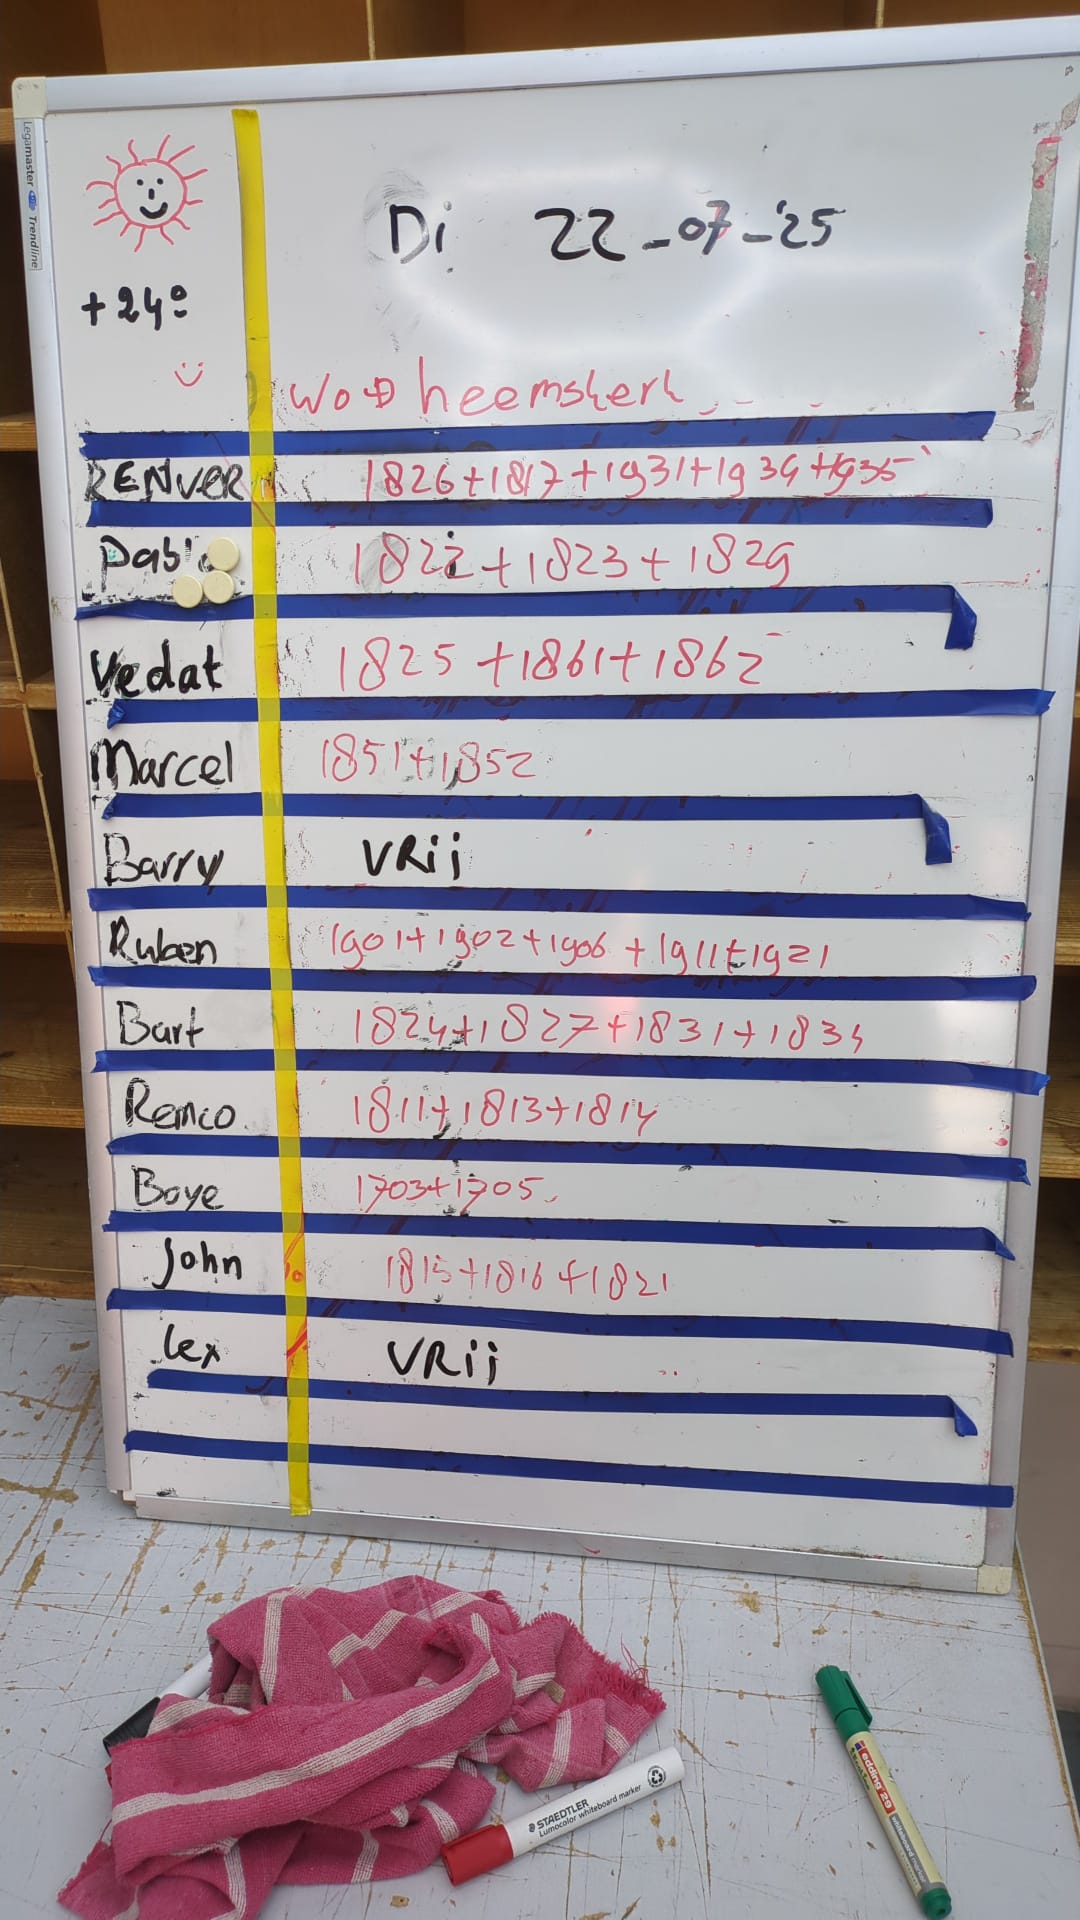 Legamaster Trendline
Di 22-07-'25
+24°
WOD heemskerk
RENVER 1826+1817+1931+1934+1935
Pablo 1822+1823+1829
Vedat 1825+1861+1862
Marcel 1851+1852
Barry VRij
Ruben 1901+1902+1906+1911+1921
Bart 1824+1827+1831+1834
Remco 1811+1813+1814
Boye 1703+1705
John 1815+1816+1821
Lex VRij
STAEDTLER
Lumocolor whiteboard marker
edding 29
whiteboard marker